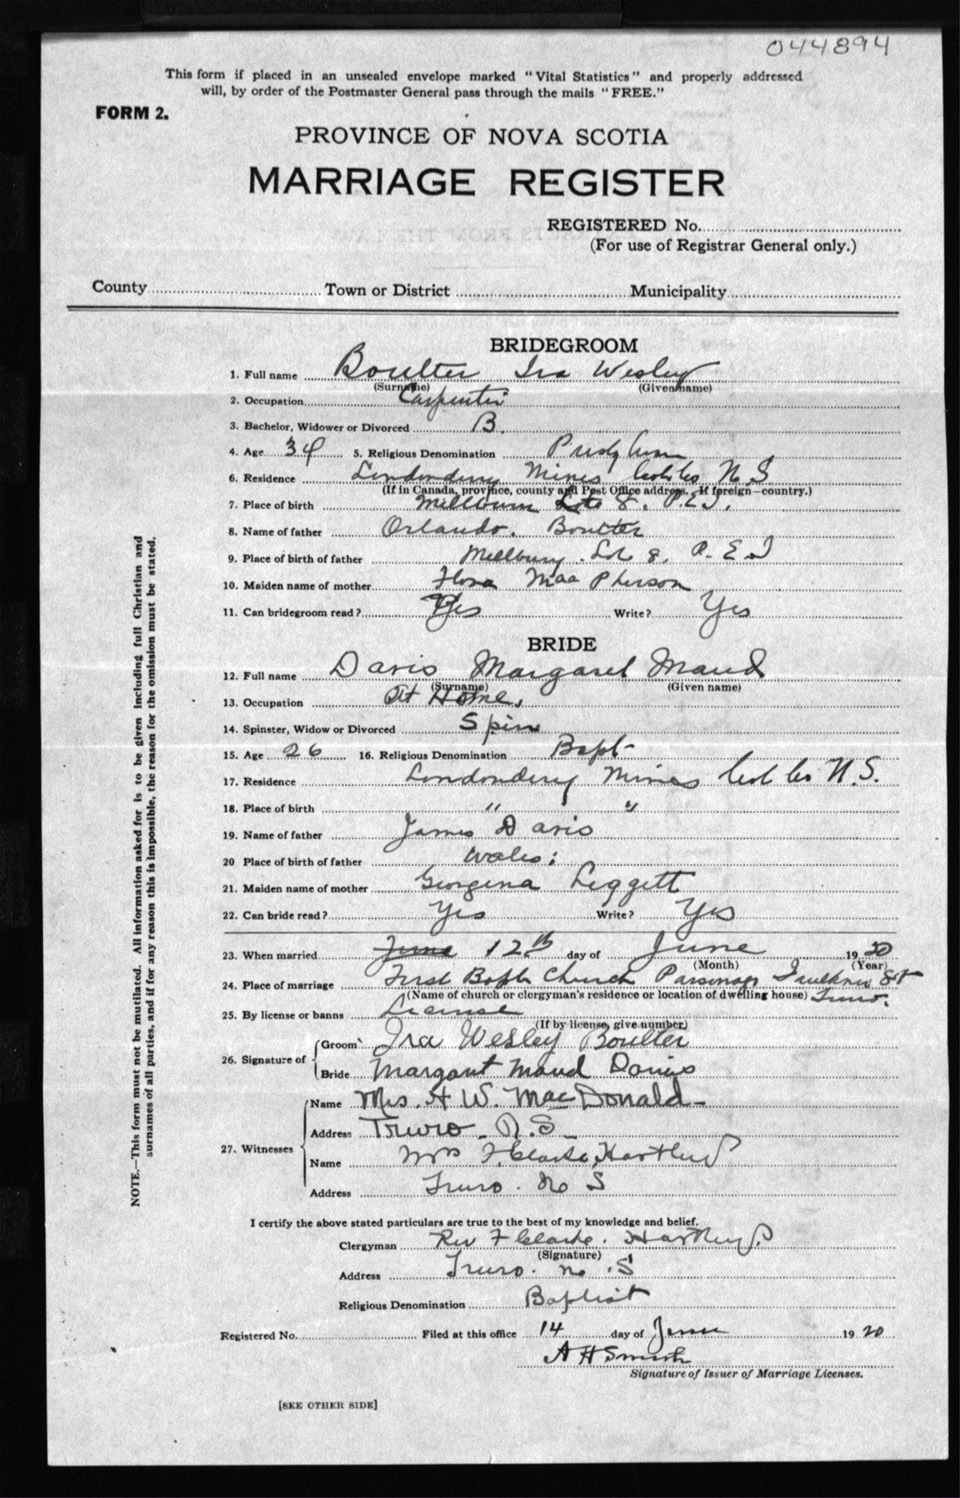 044894
This form if placed in an unsealed envelope marked "Vital Statistics" and properly addressed
will, by order of the Postmaster General pass through the mails "FREE."
FORM 2.
PROVINCE OF NOVA SCOTIA
MARRIAGE REGISTER
REGISTERED No.
(For use of Registrar General only.)
County Town or District Municipality
BRIDEGROOM
1. Full name Boulter Ira Wesley
(Surname) (Given name)
2. Occupation Carpenter
3. Bachelor, Widower or Divorced B.
4. Age 34 5. Religious Denomination
6. Residence Londonderry Mines Col Co N S
(If in Canada, province, county and Post Office address. If foreign—country.)
7. Place of birth Millburn Lot 8. P.E.I.
8. Name of father Orlando. Boulter
9. Place of birth of father Lot 8, P. E I
10. Maiden name of mother Flora MacPherson
11. Can bridegroom read? Yes Write? Yes
BRIDE
12. Full name Davis Margaret Maud
(Surname) (Given name)
13. Occupation At Home,
14. Spinster, Widow or Divorced Spin
15. Age 26 16. Religious Denomination Bapt-
17. Residence Londonderry Mines Col Co N.S.
18. Place of birth " "
19. Name of father James Davis
20 Place of birth of father Wales:
21. Maiden name of mother Georgina Leggett
22. Can bride read? Yes Write? Yes
23. When married June 12th day of June 1920
(Month) (Year)
24. Place of marriage First Bapt Church Parsonage Faulkner St
(Name of church or clergyman's residence or location of dwelling house) Truro.
25. By license or banns License
(If by license, give number)
26. Signature of Groom Ira Wesley Boulter
Bride Margaret Maud Davis
27. Witnesses Name Mrs. H. W. MacDonald-
Address Truro - N.S-
Name Mrs F. Clarke Hartley
Address Truro. N S
I certify the above stated particulars are true to the best of my knowledge and belief.
Clergyman Rev F Clarke. Hartley.
(Signature)
Address Truro. N. S
Religious Denomination Baptist
Registered No. Filed at this office 14 day of June 1920
A H Smith
Signature of Issuer of Marriage Licenses.
[SEE OTHER SIDE]
NOTE.—This form must not be mutilated. All information asked for is to be given including full Christian and
surnames of all parties, and if for any reason this is impossible, the reason for the omission must be stated.